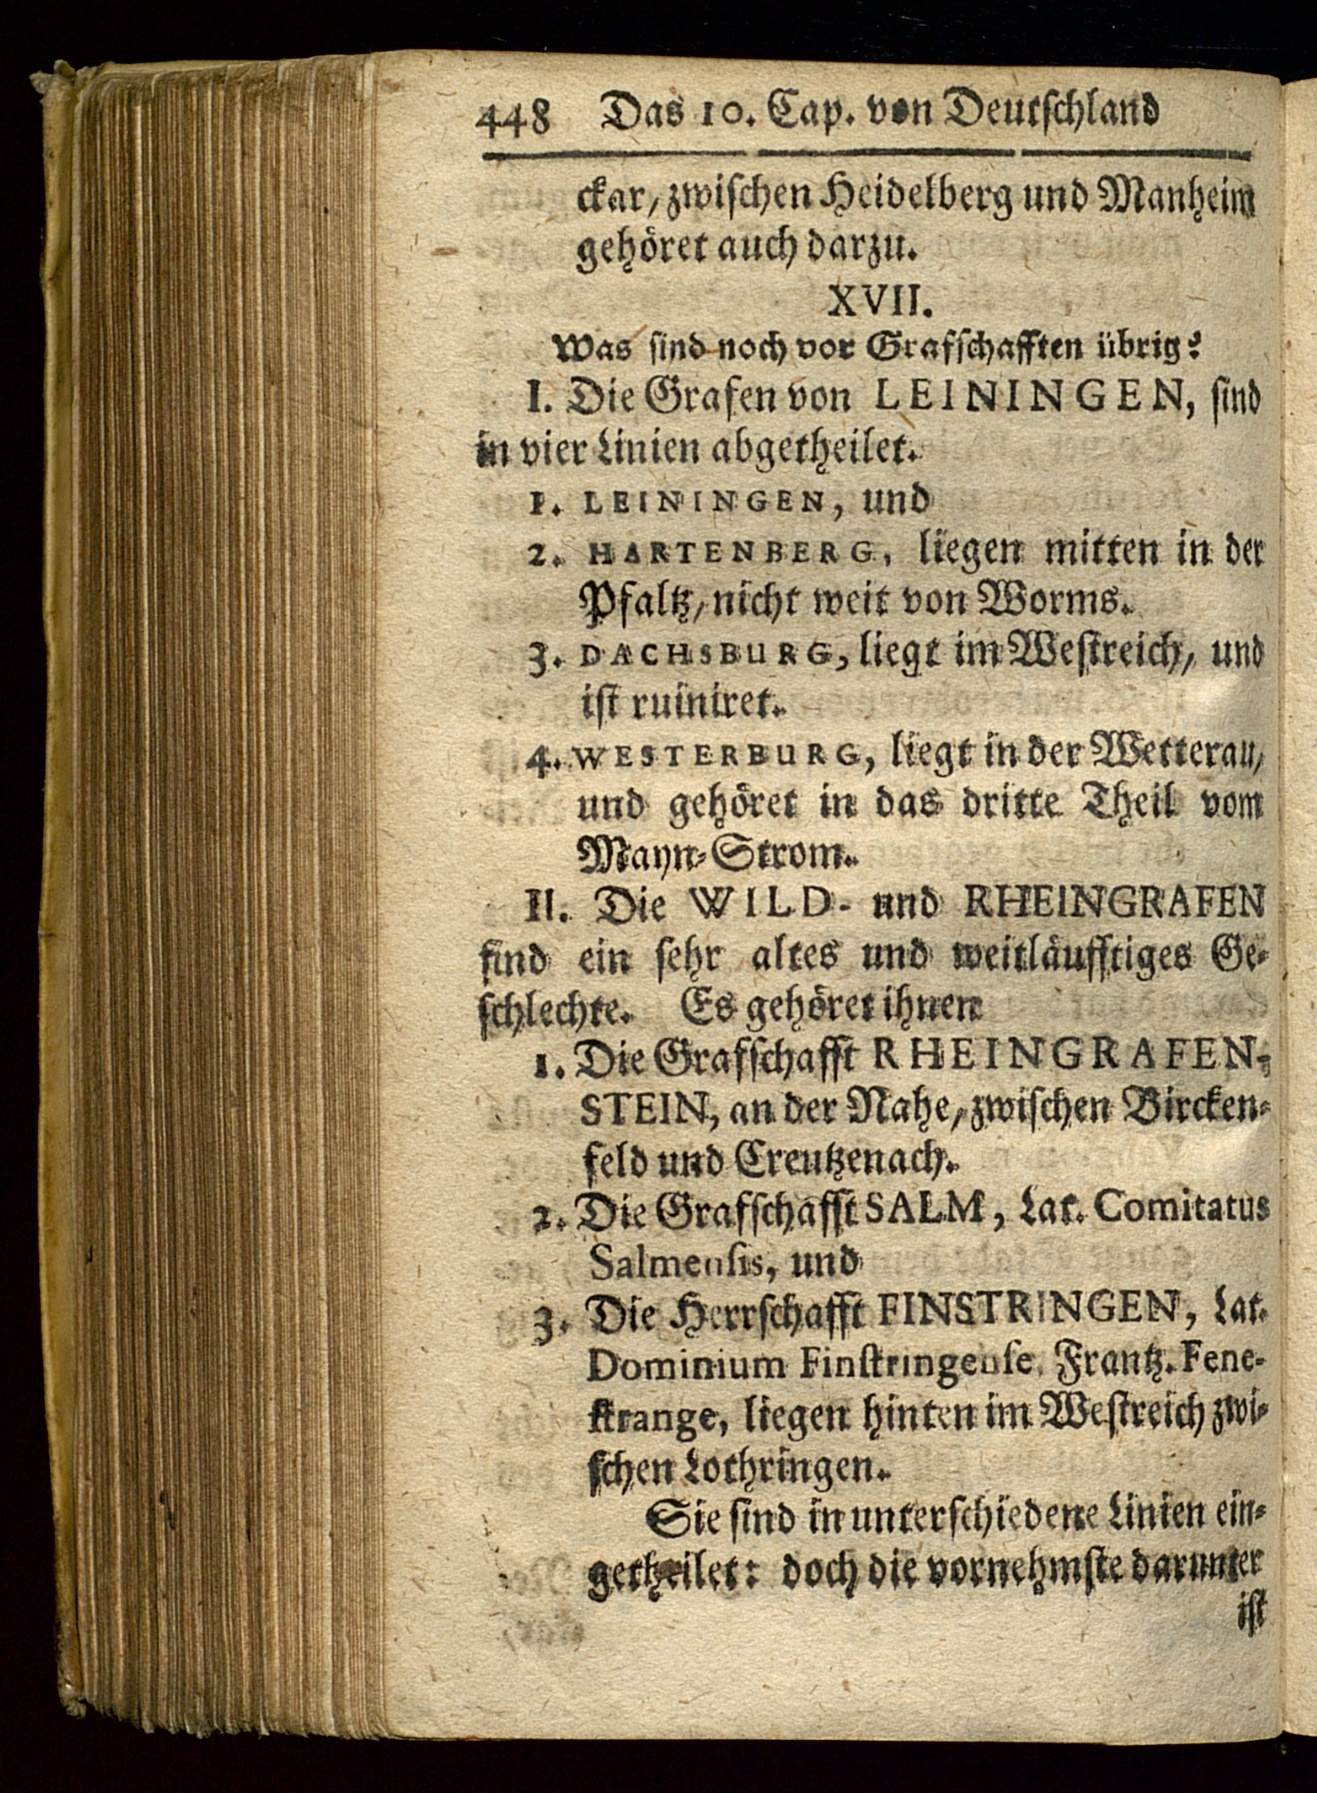 448 Das 10. Cap. von Deutschland
ckar, zwischen Heidelberg und Manheim
gehöret auch darzu.
XVII.
Was sind noch vor Grafschafften übrig?
I. Die Grafen von LEININGEN, sind
in vier Linien abgetheilet.
1. LEININGEN, und
2. HARTENBERG, liegen mitten in der
Pfaltz, nicht weit von Worms.
3. DACHSBURG, liegt im Westreich, und
ist ruiniret.
4. WESTERBURG, liegt in der Wetterau,
und gehöret in das dritte Theil vom
Mayn-Strom.
II. Die WILD- und RHEINGRAFEN
sind ein sehr altes und weitläufftiges Ge-
schlechte. Es gehöret ihnen
1. Die Grafschafft RHEINGRAFEN-
STEIN, an der Nahe, zwischen Bircken-
feld und Creutzenach.
2. Die Grafschafft SALM, Lat. Comitatus
Salmensis, und
3. Die Herrschafft FINSTRINGEN, Lat.
Dominium Finstringense, Frantz. Fene-
strange, liegen hinten im Westreich zwi-
schen Lothringen.
Sie sind in unterschiedene Linien ein-
getheilet: doch die vornehmste darunter
ist